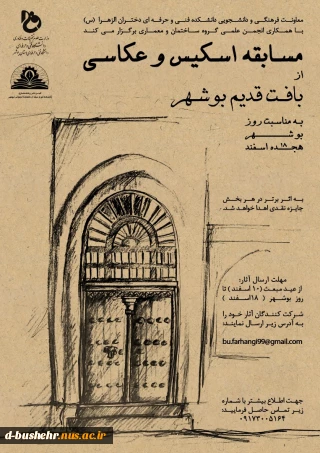 معاونت فرهنگی و دانشجویی دانشکده فنی و حرفه ای دختران الزهرا (س)
با همکاری انجمن علمی گروه ساختمان و معماری برگزار می کند
مسابقه اسکیس و عکاسی
از
بافت قدیم بوشهر
به مناسبت روز
بوشهر
۱۸
هجده اسفند
به اثر برتر در هر بخش
جایزه نقدی اهدا خواهد شد.
مهلت ارسال آثار:
از عید مبعث (۱۰ اسفند) تا
روز بوشهر ( ۱۸اسفند )
شرکت کنندگان آثار خود را
به آدرس زیر ارسال نمایند:
bu.farhangi99@gmail.com
جهت اطلاع بیشتر با شماره
زیر تماس حاصل فرمایید:
۰۹۱۷۳۰۰۵۱۶۴
d-bushehr.nus.ac.ir